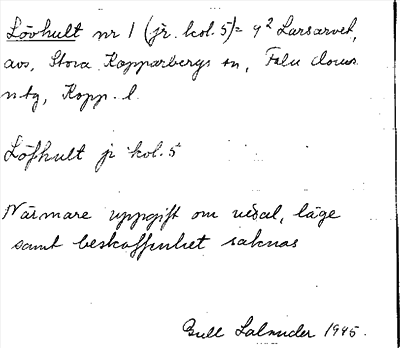 Lövhult nr 1 (jr. kol. 5) = 4² Larsarvet,
avs, Stora Kopparbergs sn, Falu doms
ntg, Kopp. l.
Löfhult jr kol. 5
Närmare uppgift om areal, läge
samt beskaffenhet saknas
1945.